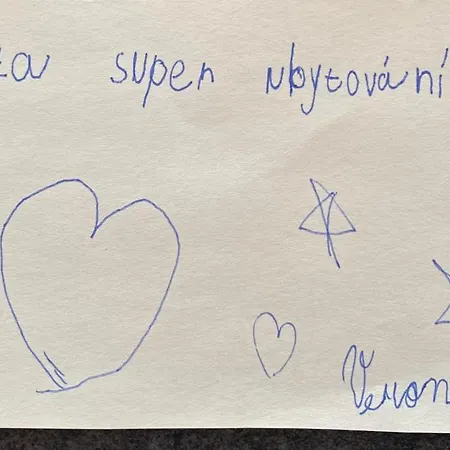 za super ubytování
Veron